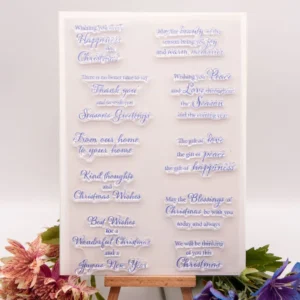 Wishing you
Happiness
at
Christmas
There is no better time to say
Thank you
and to wish you
Seasons Greetings
From our home
to your home
Kind thoughts
and
Christmas Wishes
Best Wishes
for a
Wonderful Christmas
and a
Joyous New Year
May the
season bring joy
and warm moments
Wishing you Peace
and Love throughout
the Season
and the coming year
The gift of love
the gift of peace
the gift of happiness
May the Blessings of
Christmas be with you
today and always
We will be thinking
of you this
Christmas